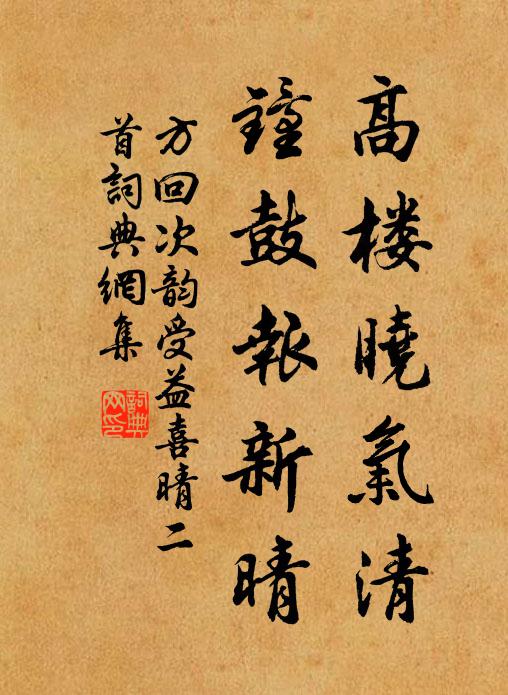 高楼曉氣清
鐘鼓報新晴
方回次韵受益喜晴二
首詞典網集
詞典
网印